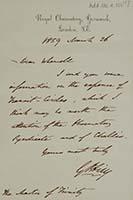 Royal Observatory, Greenwich,
London, S.E.
1859 March 26
Dear Whewell
I send you some
information on the expense of
Transit-Circles, which I
think may be worth the
attention of the Observatory
Syndicate and of Challis
Yours most truly
G B Airy
The Master of Trinity